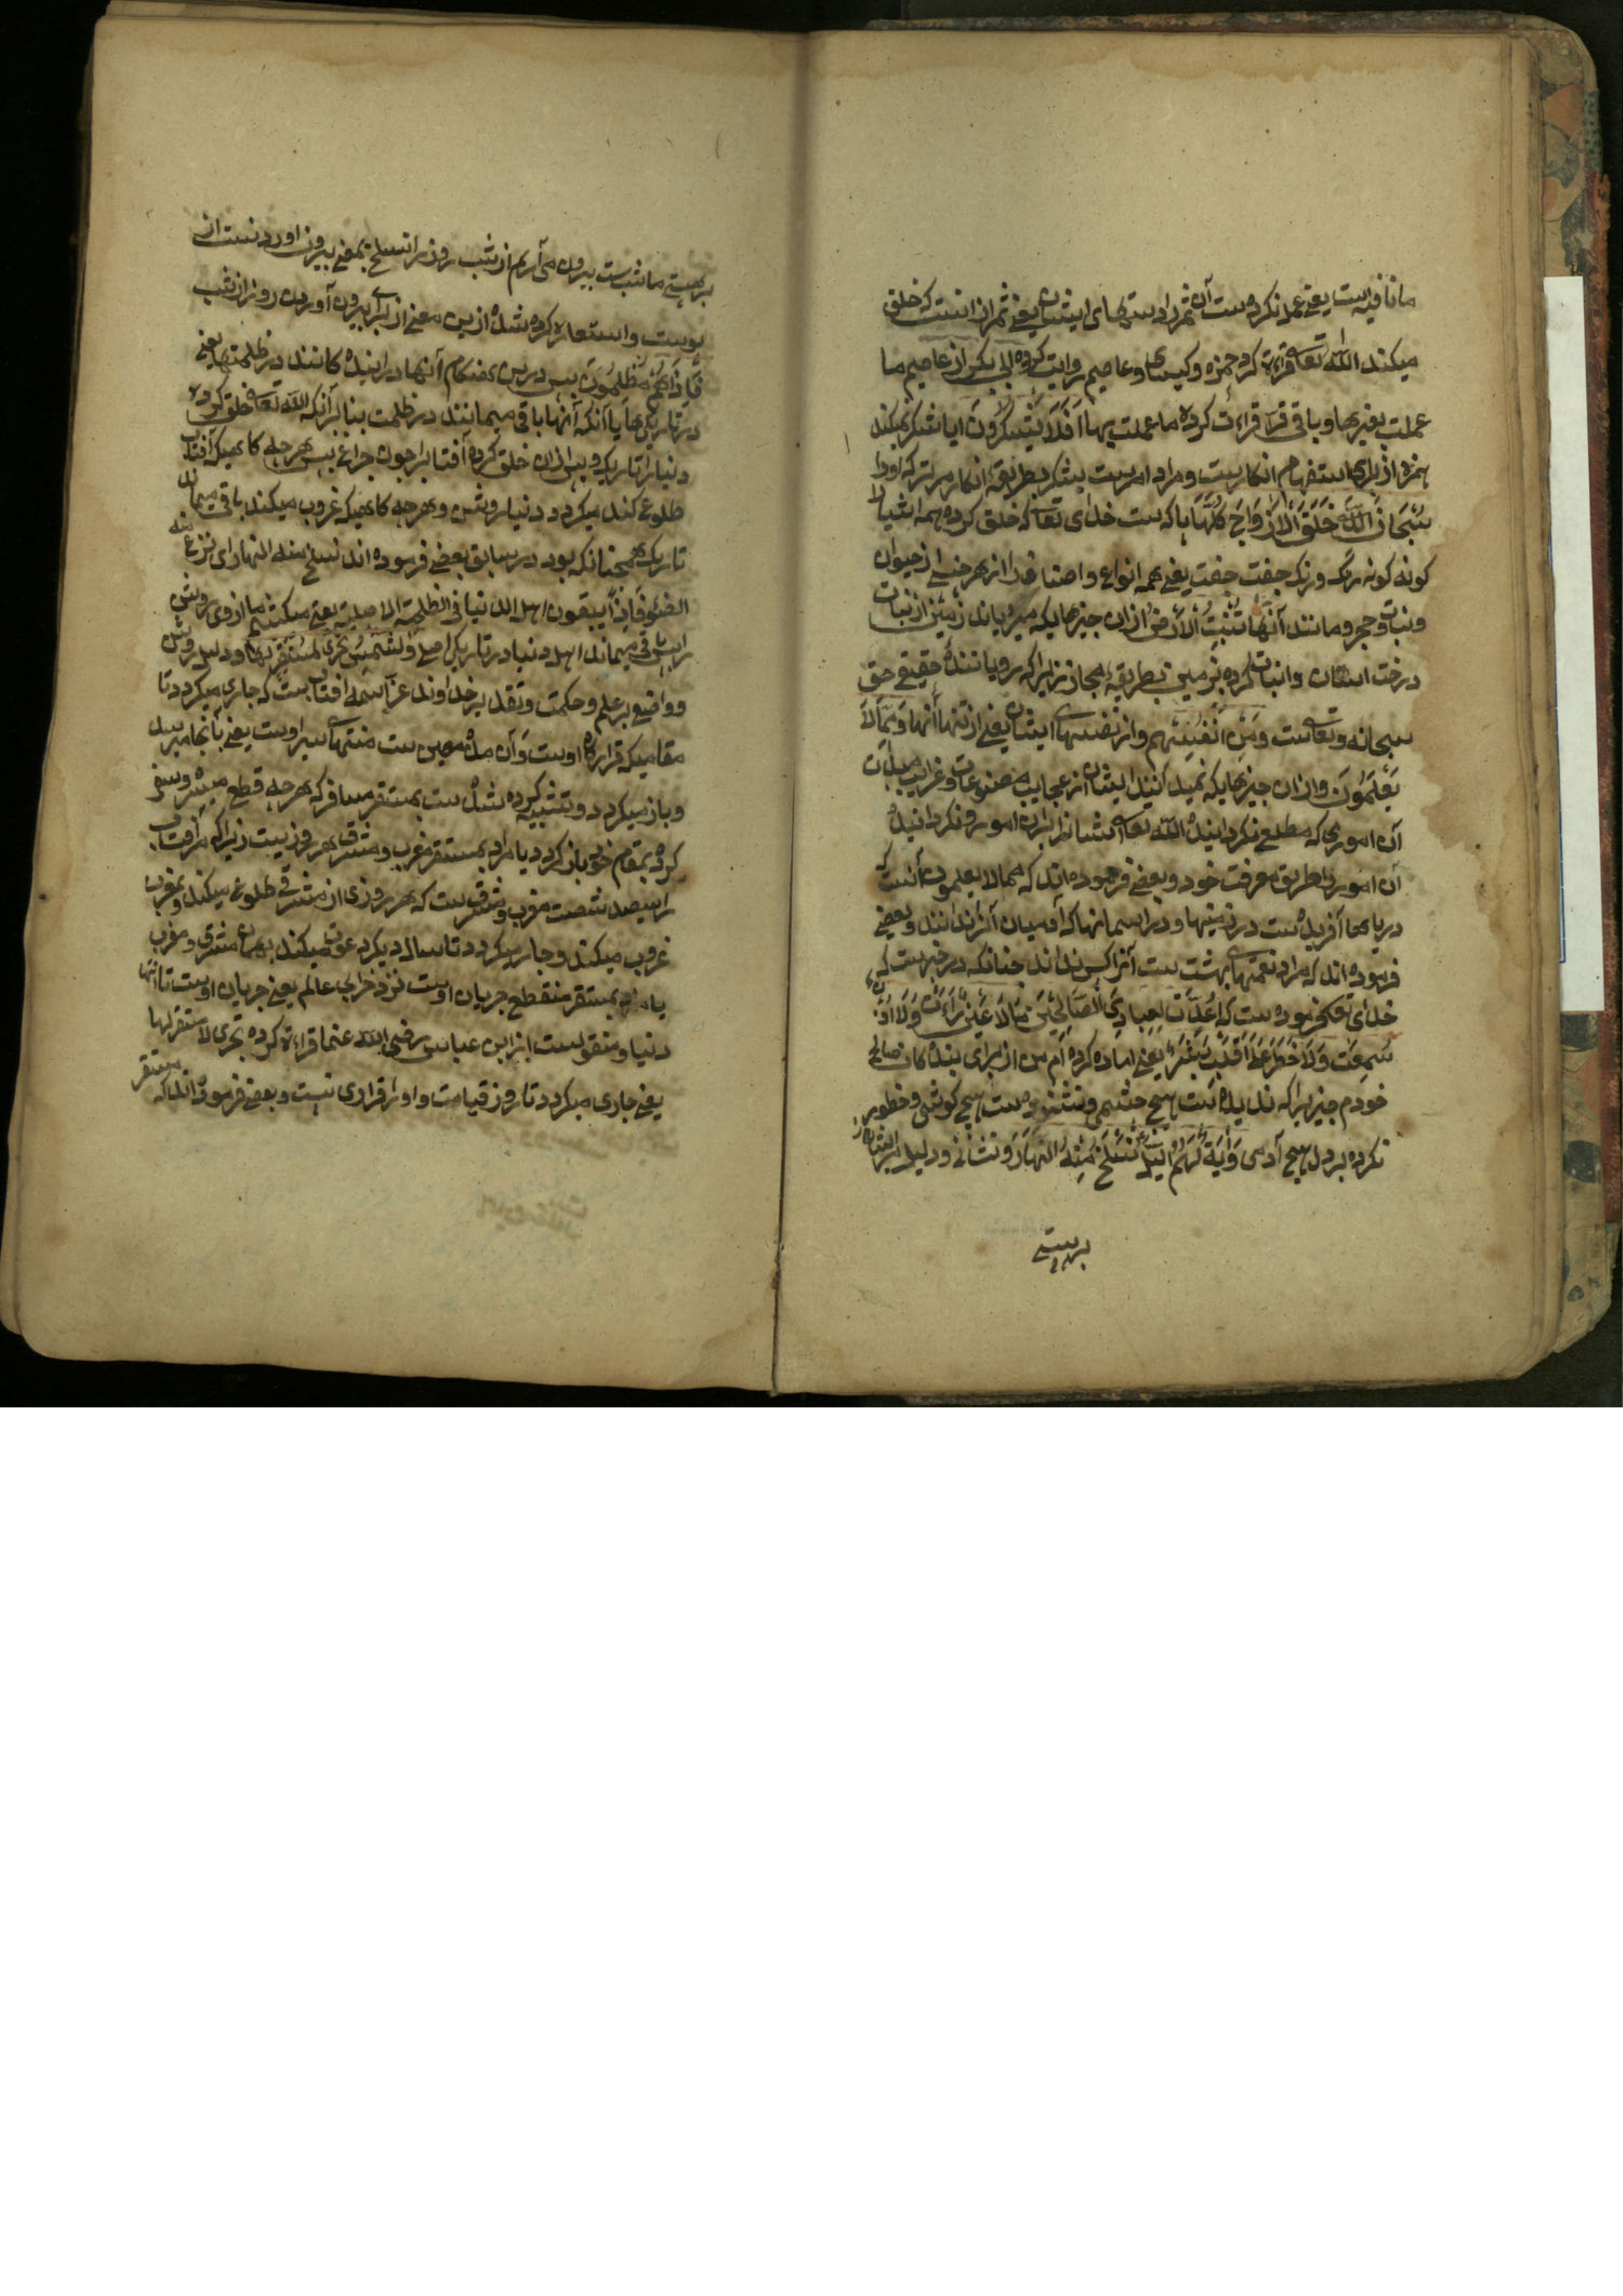 ما نافیه است یعنی عمل نکرده ست آن ثمر را دستهای ایشان یعنی ثمر از انست که خلق
میکند الله تعالی قراءة کرد حمزه و کیسای و عاصم روایت کرده ابی بکر از عاصم ما
عملت بغیر ها و باقی قرّا قراءت کرده ما عملت بها اَفَلَا یَشْکُرُونَ ایا شکر نمیکند
همزه از برای استفهام انکار یست و مراد امر ست بشکر بطریقهٔ انکار مر ترک او را
سُبْحَانَ اللَّهِ خَلَقَ الْاَزْوَاجَ کُلَّهَا پاکست خدای تعالی که خلق کرده همه اشیا را
کونه کونه رنک و رنک جفت جفت یعنی همه انواع و اصناف را از هر جنسی از حیوان
و نبات و حجر و مانند آنها تُنْبِتُ الْاَرْضُ از ان چیزهایکه میرویاند زمین از نبات
درخت استان و انبات کرده بزمین بطریقهٔ مجاز زیرا که رویانندهٔ حقیقی حق
سبحانه و تعالیست وَمِنْ اَنْفُسِهِمْ و از نفسهای ایشان یعنی از تنها آنها وَمِمَّا لَا
یَعْلَمُونَ و از ان چیزهایکه نمیدانند ایشان از عجایب مصنوعات و غرایب مبدعات
آن اموری که مطلع نکردانیده الله تعالی ایشانرا بران امور و نکردانیده
آن امور را طریق معرفت خود و بعضی فرموده اند که مما لا یعلمون آنست که
دریاها آفریده ست در زمینها و در اسمانها که آدمیان آنرا ندانند و بعضی
فرموده اند که مراد نعمتهای بهشت ست آنرا کس نداند چنانکه در خبر ست که
خدای تعالی فرموده ست که اُعِدَّتْ لِعِبَادِیَ الصَّالِحِیْنَ مَا لَا عَیْنٌ رَاءَتْ وَلَا اُذُنٌ
سَمِعَتْ وَلَا خَطَرَ عَلَی قَلْبِ بَشَرٍ یعنی اماده کرده ام من از برای بنده کان صالح
خودم چیزیرا که ندیده ست هیچ چشمی و نشنوده ست هیچ کوشی و خطور
نکرده بر دل هیچ آدمی وَاٰیَةٌ لَهُمُ الَّیْلُ نَسْلَخُ مِنْهُ النَّهَارَ و نشانی و دلیل مر ایشان را
برهستی
برهستی ما شب ست بیرون می آریم از شب روز را نسلخ بمعنی بیرون اوردنست از
پوست و استعاره کرده شده ازین معنی از برای بیرون آوردن روز از شب
فَاِذَا هُمْ مُظْلِمُونَ پس درین هنکام آنها دراینده کانند در ظلمتها یعنی
در تاریکی ها یا آنکه آنها باقی میمانند در ظلمت بنا بر آنکه الله تعالی خلق کرده
دنیا را تاریک و پس از ان خلق کرده آفتاب را چون چراغ پس هر جای کاهیکه آفتاب
طلوع کند میکردد دنیا روشن و هر جا کاهیکه غروب میکند باقی میماند
تاریک همچنانکه بود در سابق بعضی فرموده اند نسلخ منه النهار ای ننزع منه
الضوء فاذا یبقون اهل الدنیا فی الظلمة الاصلیة یعنی میکشیم ما از وی روشنی
را پس باقی میماند اهل دنیا در تاریکی اصلی وَالشَّمْسُ تَجْرِی لِمُسْتَقَرٍّ لَهَا و دلیل روشن
و واضح بر علم و حکمت و تقدیر خداوند عز اسمه افتاب ست که جاری میکردد تا
مقامیکه قرارکاه اوست و آن حد معین ست منتهای سیر اوست یعنی بآنجا میرسد
و باز میکردد و تشبیه کرده شده ست بمستقر مسافر که هرجای قطع سفر
کرده بمقام خود باز کردد یا مراد بمستقر مغرب و مشرق هر روز یست زیرا که مر آفتاب
را سیصد شصت مغرب و مشرق ست که هر روزی از مشرقی طلوع میکند و بمغرب
غروب میکند و جاری میکردد تا سال دیکر عود میکند بهمان مشرق و مغرب
یا مراد بمستقر منقطع جریان اوست نزد خرابی عالم یعنی جریان اوست تا انتها
دنیا و منقولست از ابن عباس رضی الله عنهما قراءة کرده تجری لا مستقر لها
یعنی جاری میکردد تا روز قیامت و او را قراری نیست و بعضی فرموده اند که مستقر